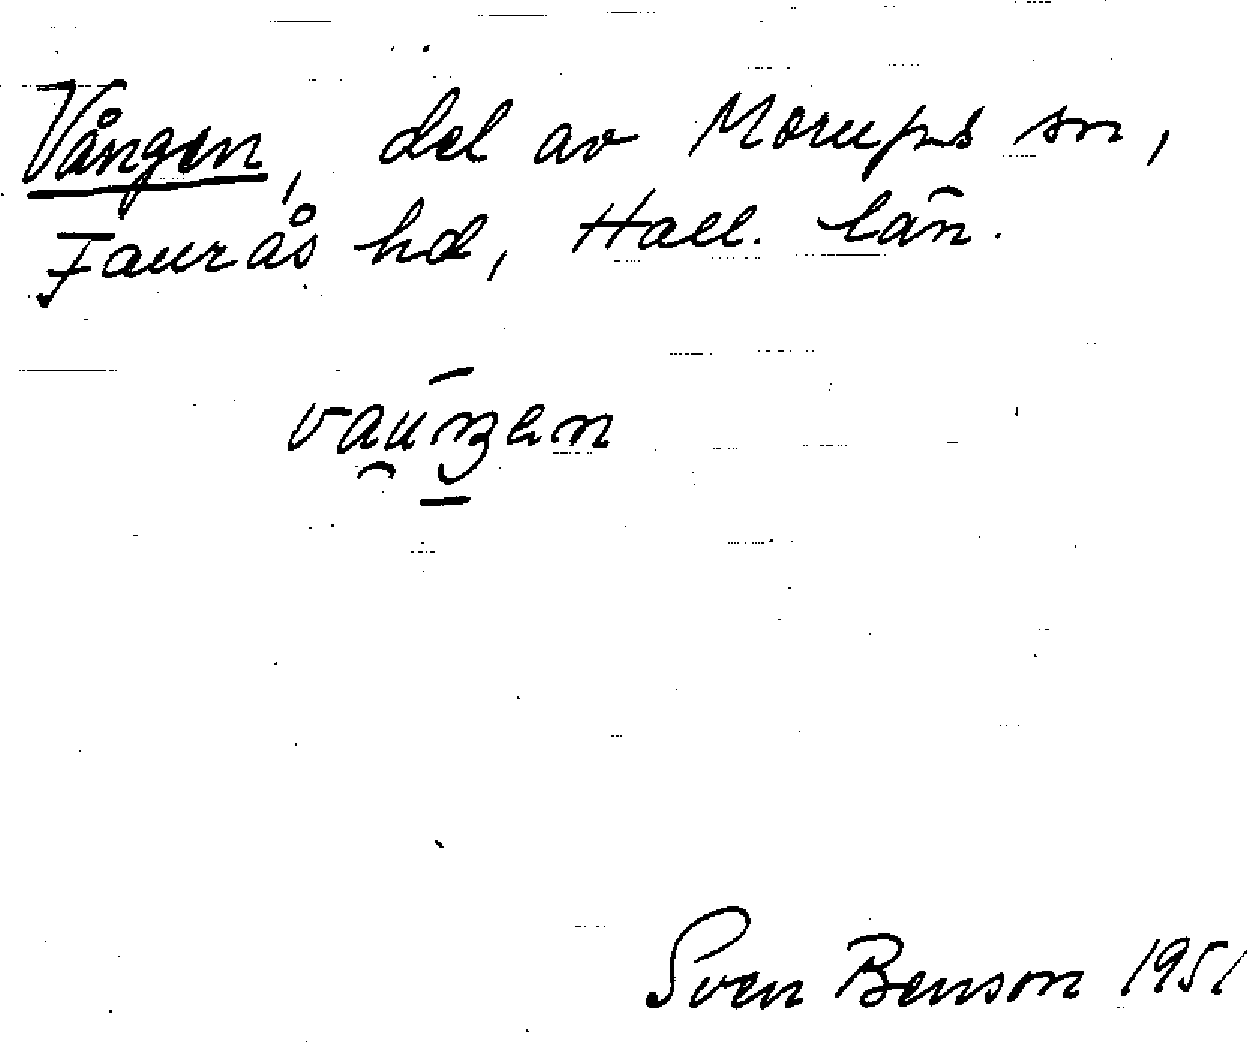 Vången, del av Morups sn,
Faurås hd, Hall. län.
vauŋen
Sven Benson 1951